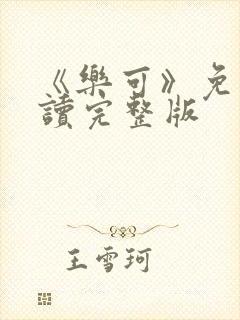 《樂可》免
讀完整版
王雪珂